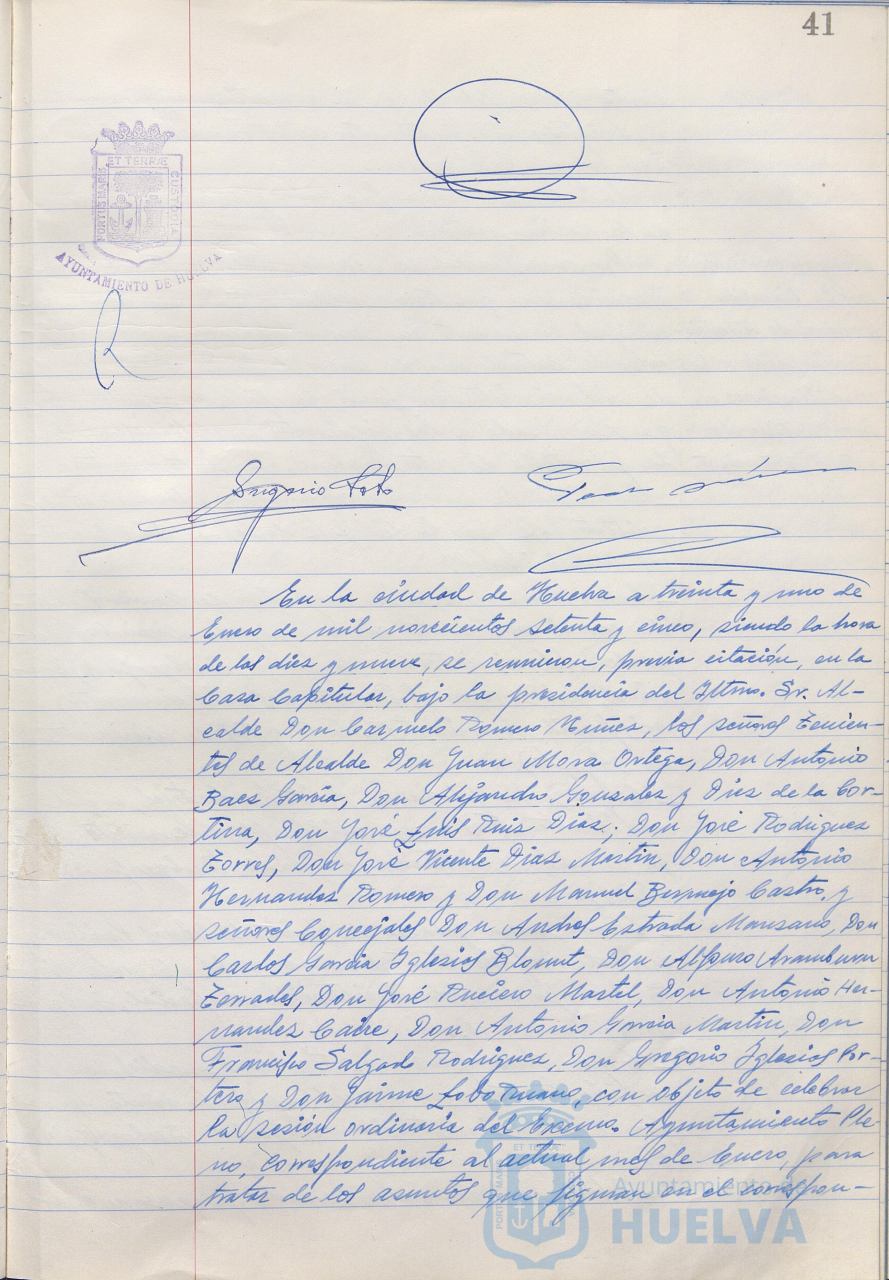 41
ET TERRÆ
PORTUS MARIS
CUSTODIA
AYUNTAMIENTO DE HUELVA
En la ciudad de Huelva a treinta y uno de
Enero de mil novecientos setenta y cinco, siendo la hora
de las diez y nueve, se reunieron, previa citación, en la
Casa Capitular, bajo la presidencia del Iltmo. Sr. Al-
calde Don Carmelo Romero Núñez, los señores Tenien-
tes de Alcalde Don Juan Mora Ortega, Don Antonio
Baez García, Don Alejandro Gonzalez y Diez de la Cor-
tina, Don José Luis Ruiz Díaz; Don José Rodriguez
Torres, Don José Vicente Diaz Martin, Don Antonio
Hernandez Romero y Don Manuel Bermejo Castro, y
señores Concejales Don Andres Estrada Manzano, Don
Carlos García Iglesias Blount, Don Alfonso Aramburu
Terrades, Don José Rucero Martel, Don Antonio Her-
nandez Caire, Don Antonio García Martin, Don
Francisco Salgado Rodriguez, Don Gregorio Iglesias Por-
tero y Don Jaime Lobo Ruano, con objeto de celebrar
la sesión ordinaria del Excmo. Ayuntamiento Ple-
no, correspondiente al actual mes de Enero, para
tratar de los asuntos que figuran en el correspon-
Ayuntamiento de
HUELVA